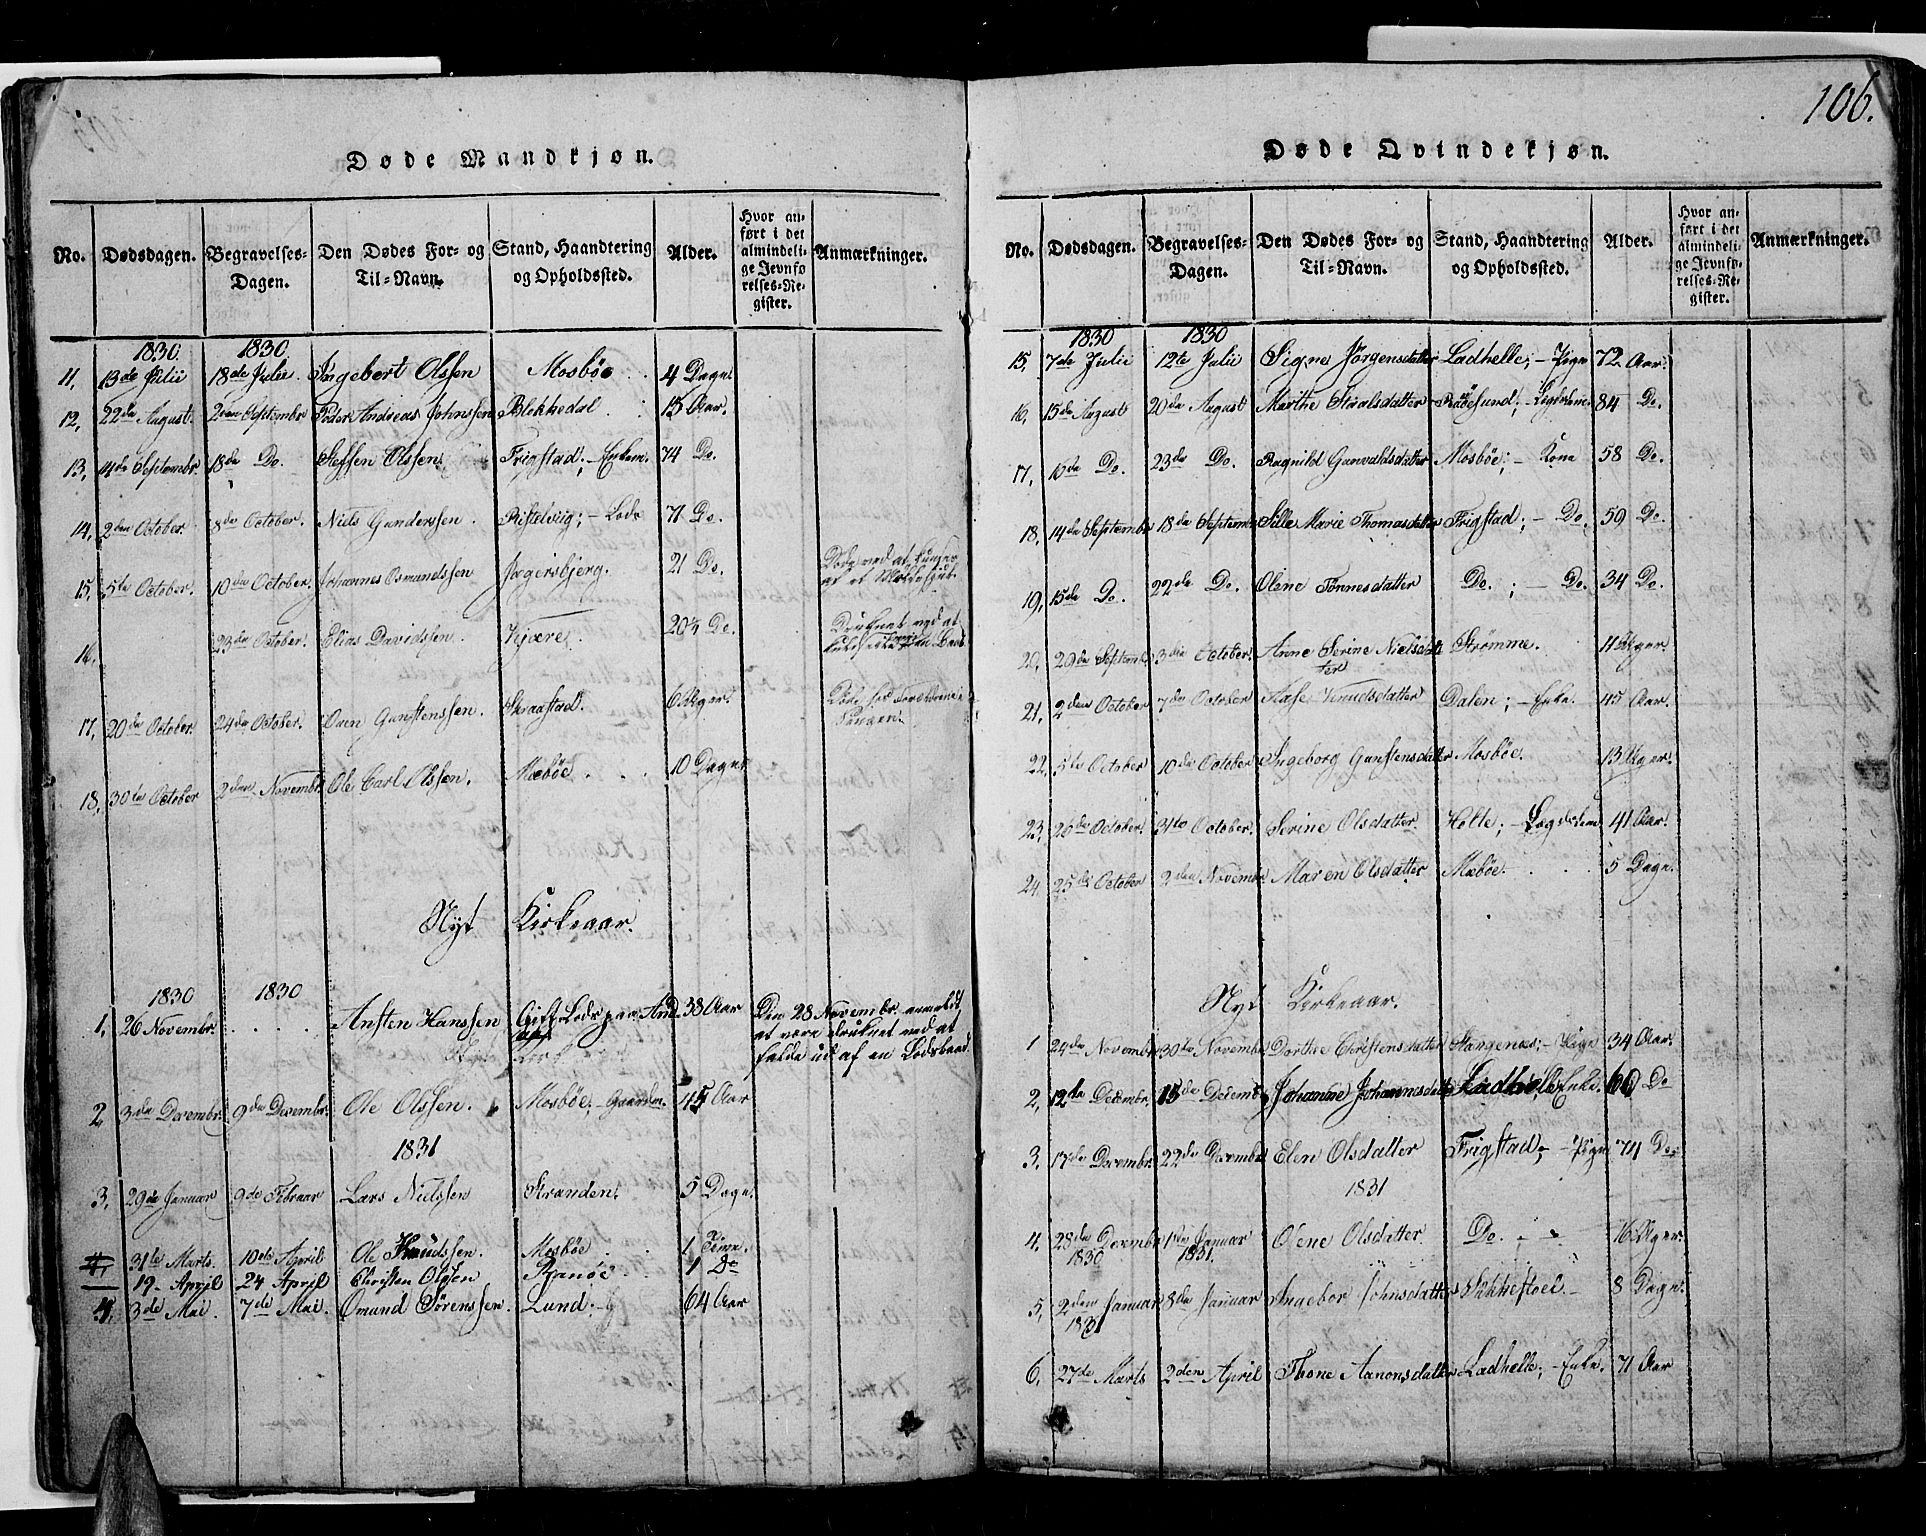 106.
Døde Mandkjøn.
No. Dødsdagen. Begravelses-Dagen. Den Dødes For- og Til-Navn. Stand, Haandtering og Opholdssted. Alder. Hvor anført i det almindelige Jevnførelses-Register. Anmærkninger.
1830 1830
11, 13de Julii 18de Julii. Ingebert Olssen Mosbøe 4 Dage.
12, 22de August. 2den Septembr Peder Andreas Johnssen Blekkedal 13 Aar.
13, 14de Septembr 18de Do. Steffen Olssen. Frigstad; – Enkem. 74 Do.
14, 2den October. 8de October. Niels Gunderssen. Ristelviig; – Lods 71 Do.
15, 5te October. 10de October. Johannes Osmundssen Jægersbjerg. 21 Do. Døde ved at
16, 23de October. Elias Davidssen. Kjære. 20¼ Do. Druknet ved at
17, 20de October. 24de October. Oven Gunstenssen. Skraastad. 6 Uger.
18, 30te October 2den Novembr. Ole Carl Olssen. Mæbøe 10 Dage
Nyt Kirkeaar.
1830 1830
1, 26 Novembr. Ansten Hanssen Gift Lods paa 38 Aar Den 28 Novembr. anmeldt
at være druknet ved at
falde ud af en Lodsbaad
2 3de Decembr. 9de Decembr. Ole Olssen. Mosbøe. – Gaardm. 45 Aar
1831
3, 29de Januar 9de Februar Lars Nielssen Stranden. 5 Dage.
4, 31te Marts. 10de April. Ole Knudssen. Mosbøe 1 Time.
19. April 24 April Christen Olssen Ranøe 1 Do
4, 3de Mai. 7de Mai. Omund Sørenssen. Lund. 64 Aar
Døde Qvindekjøn.
No. Dødsdagen. Begravelses-Dagen. Den Dødes For- og Til-Navn. Stand, Haandtering og Opholdssted. Alder. Hvor anført i det almindelige Jevnførelses-Register. Anmærkninger.
1830 1830
15, 7de Julii 12te Julii Signe Jørgensdatter Ladhelle; – Pige 72 Aar.
16, 15de August 20de August Marthe Staalsdatter Røbesund; 84 Do.
17, 16de Do. 23de Do. Ragnild Gunvaldsdatter Mosbøe; – Kone 58 Do.
18, 14de Septembr 18de Septembr Sille Marie Thomasdatter Frigstad; – Do. 59 Do.
19, 15de Do. 22de Do. Olene Tønnesdatter Do.; – Do. 34 Do.
20, 29de Septembr. 3die October. Anne Serine Nielsdatter Strømme. 11 Uger.
21, 2den October 7de October Aase Knudsdatter Dalen; – Enke. 45 Aar.
22, 5te October 10de October Ingeborg Gunstensdatter Mosbøe. 13 Uger.
23, 26de October. 31te October. Serine Olsdatter. Holte; – Løgdslem 41 Aar.
24, 25de October 2den Novembr Maren Olsdatter Mæbøe. 5 Dage.
Nyt Kirkeaar.
1 24de Novembr 30te Novembr Dorthe Christensdatter Stangenæs; – Pige 34 Aar.
2, 12te Decembr. 15de Decembr Johanne Johannesdatter Ladhelle Enke. 60 Do
3, 17de Decembr. 22de Decembr Elen Olsdatter Frigstad; – Pige 74 Do.
1831
4, 28de Decembr 1830 1ste Januar 1831. Olene Olsdatter Do. 16 Uger.
5, 2den Januar 1831 8de Januar Ingebor Johnsdatter Sikkestoel. 8 Dage.
6, 27de Marts 2den April Thone Aanonsdatter Ladhelle; – Enke. 71 Aar